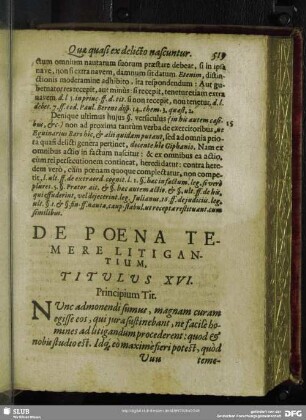 Quæ quasi ex delicto nascuntur. 513
ctum omnium nautarum suorum præstare debeat, si in ipsa
nave, non si extra navem, damnum sit datum. Etenim, distin-
ctionis moderamine adhibito, ita respondendum: Aut gu-
bernator res recepit, aut minùs: si recepit, tenetur etiam extra
navem. d. l. 3. in princ. ff. d. tit. si non recepit, non tenetur, d. l.
debet. 7. ff. eod. Paul.
Denique ultimus hujus §. versiculus (in his autem casi- 15
bus, &c.) non ad proxima tantùm verba de exercitoribus, ut
Eguinarius Baro hîc, & alii quidam putant, sed ad omnia prio-
ra quasi delicti genera pertinet, docente hîc Giphanio. Nam ex
omnibus actio in factum nascitur: & ex omnibus ea actio,
cùm rei persecutionem contineat, heredi datur: contra here-
dem verò, cùm pœnam quoque complectatur, non compe-
tit, l. ult. ff. de extraord. cognit. l. 1. §. hæc in factum. leg. si verò
plures. 5. §. Prætor ait. & §. hæc autem actio. & §. ult. ff. de his,
qui effuderint, vel dejecerint. leg. Julianus, 16. ff. de judiciis. leg.
ult. §. 1. & §. fin. ff. nautæ, caup. stabul. ut recepta restituant. cum
similibus.
DE POENA TE-
MERE LITIGAN-
TIUM,
TITULUS XVI.
Principium Tit.
NUnc admonendi sumus, magnam curam
egisse eos, qui jura sustinebant, ne facilè ho-
mines ad litigandum procederent: quod &
nobis studio est. Idq́ eo maximè fieri potest, quòd
Uuu teme-
SLUB